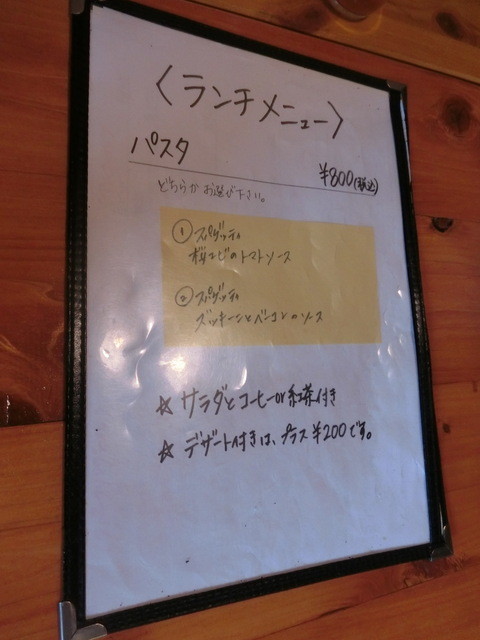 〈ランチメニュー〉
パスタ
¥800(税込)
どちらかお選び下さい。
① スパゲッティ
桜エビのトマトソース
② スパゲッティ
ズッキーニとベーコンのソース
☆ サラダとコーヒーor紅茶付き
☆ デザート付きは、プラス¥200です。